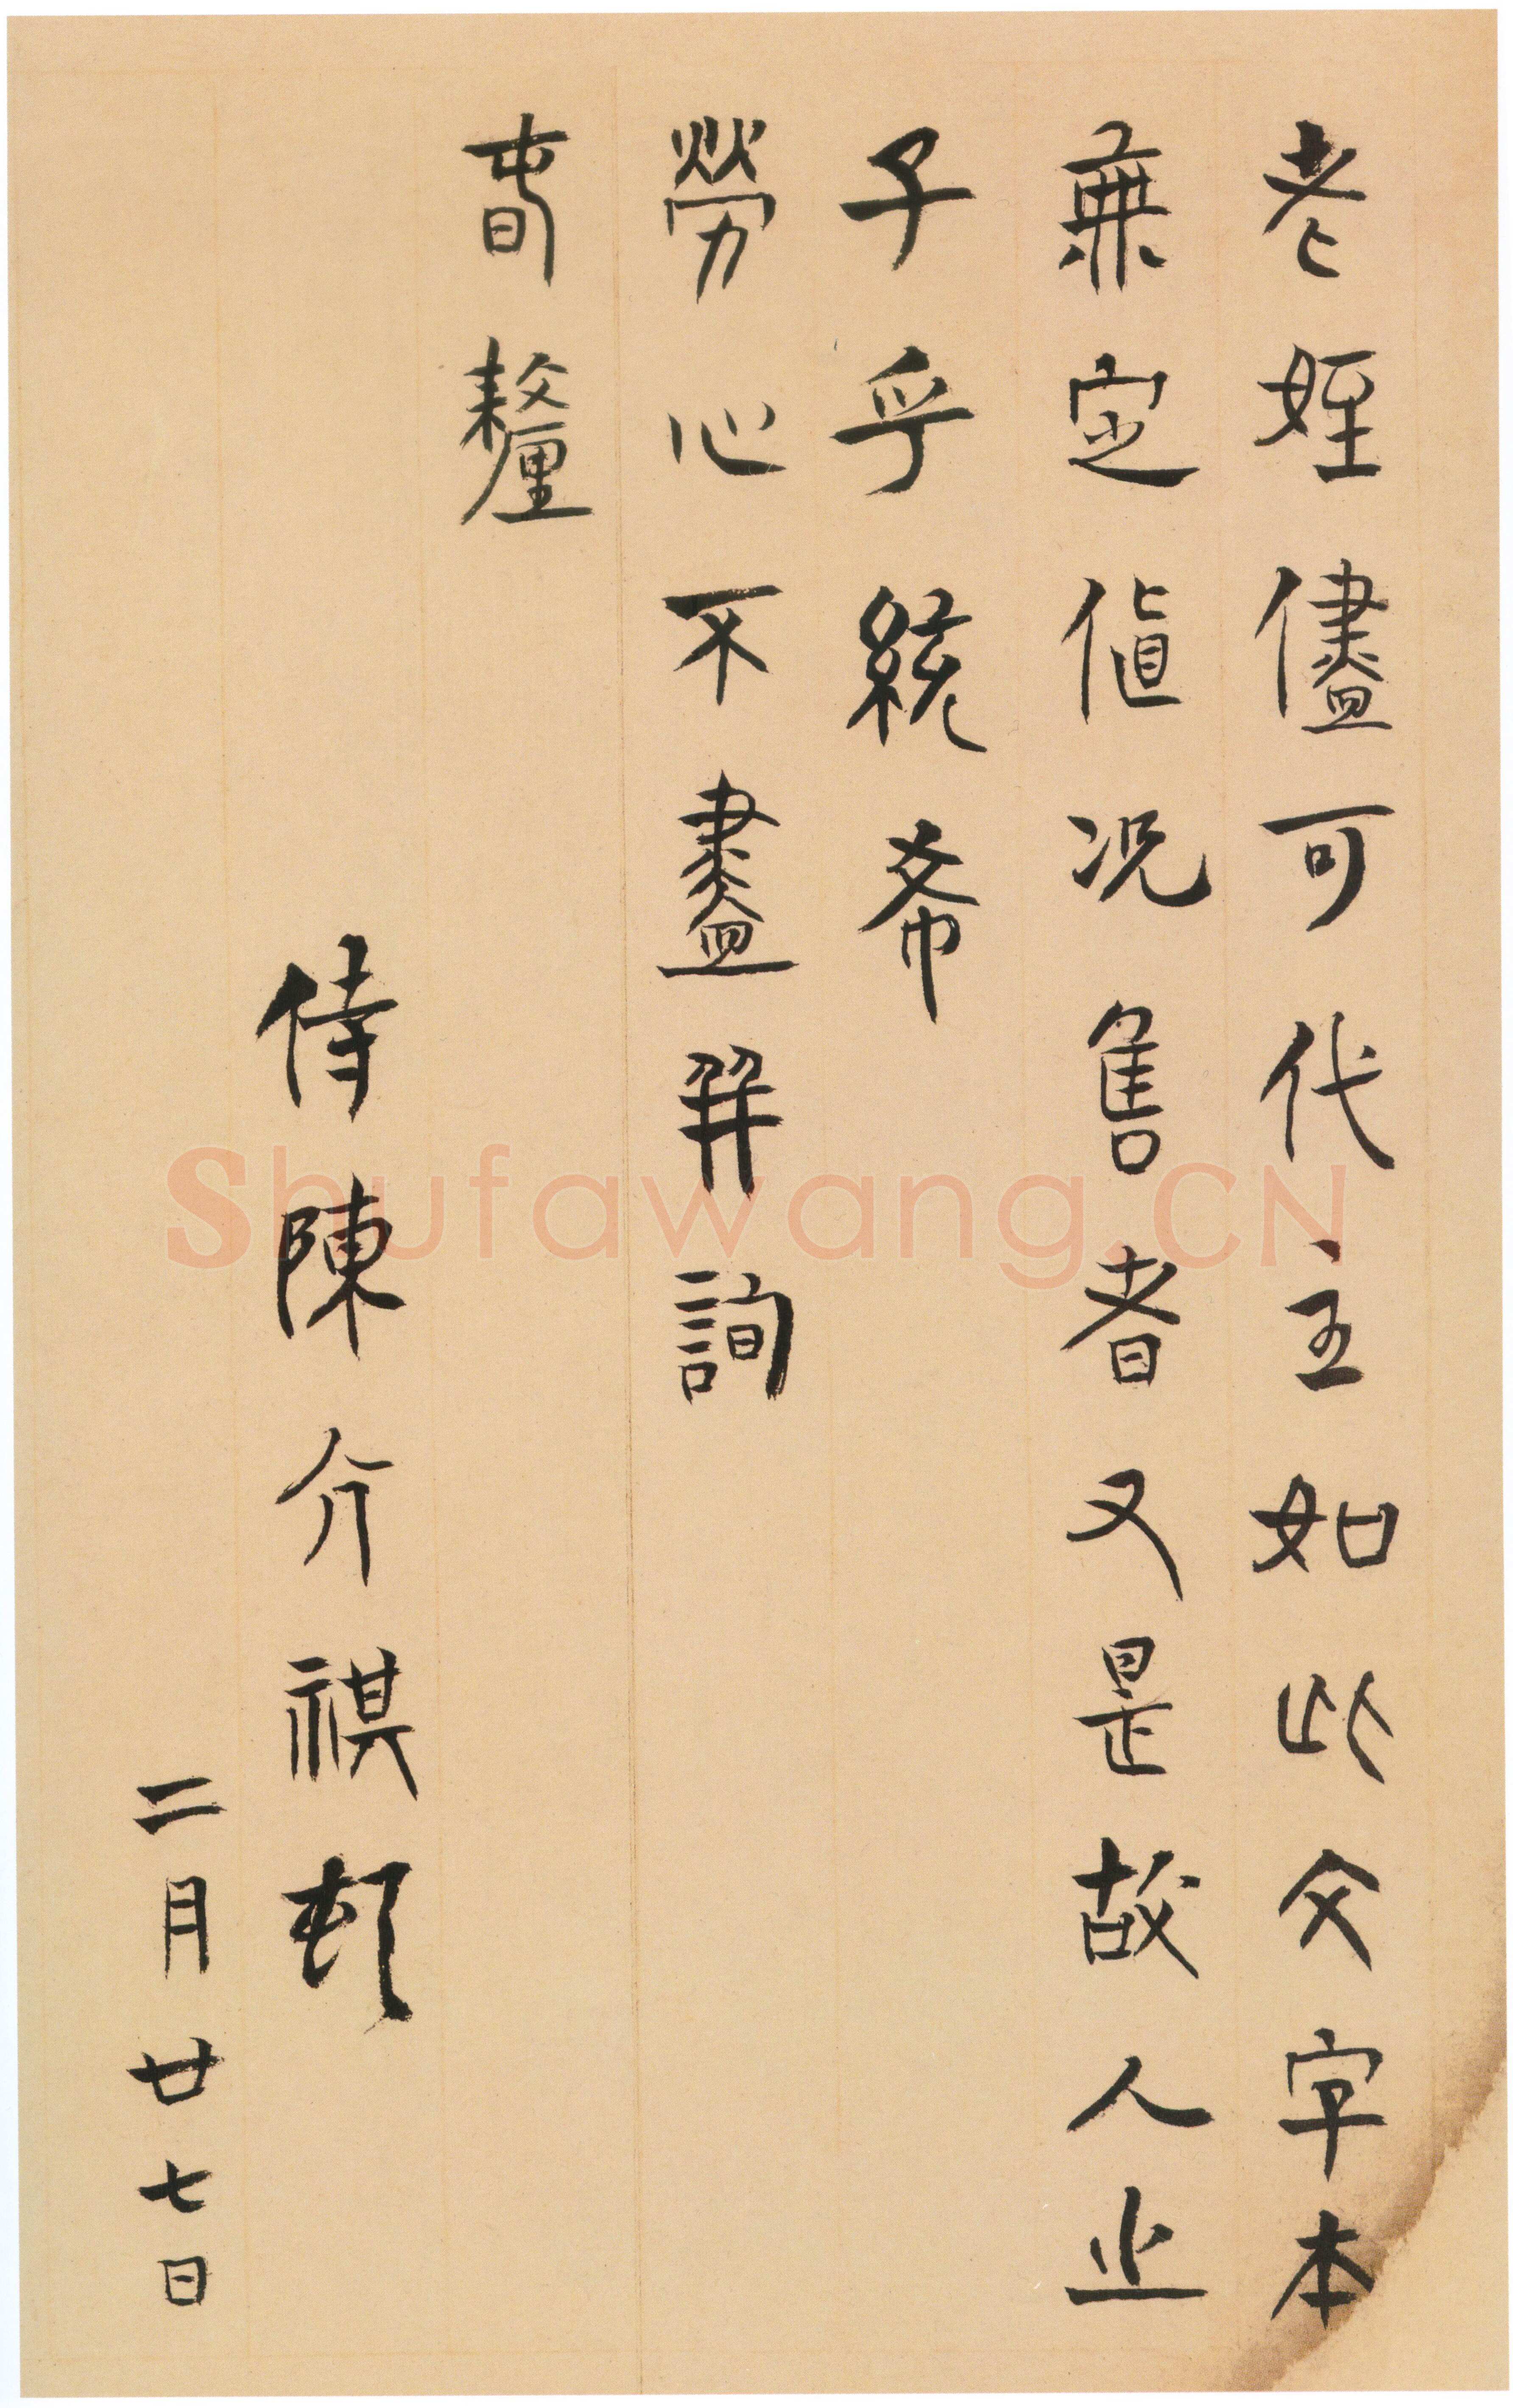 老姪儘可代主如此文字本
無定值况售者又是故人之
子乎統希
勞心不盡幷詢
春釐
侍陳介祺頓
二月廿七日
Shufawang.CN